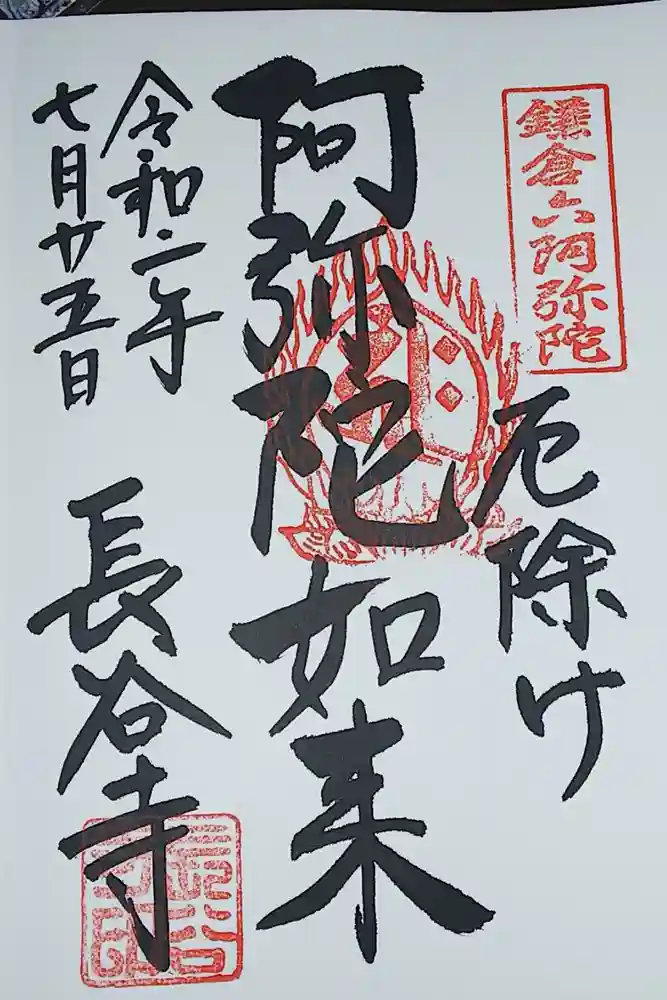 鎌倉六阿弥陀
厄除け
阿弥陀如来
令和二年
七月廿五日
長谷寺